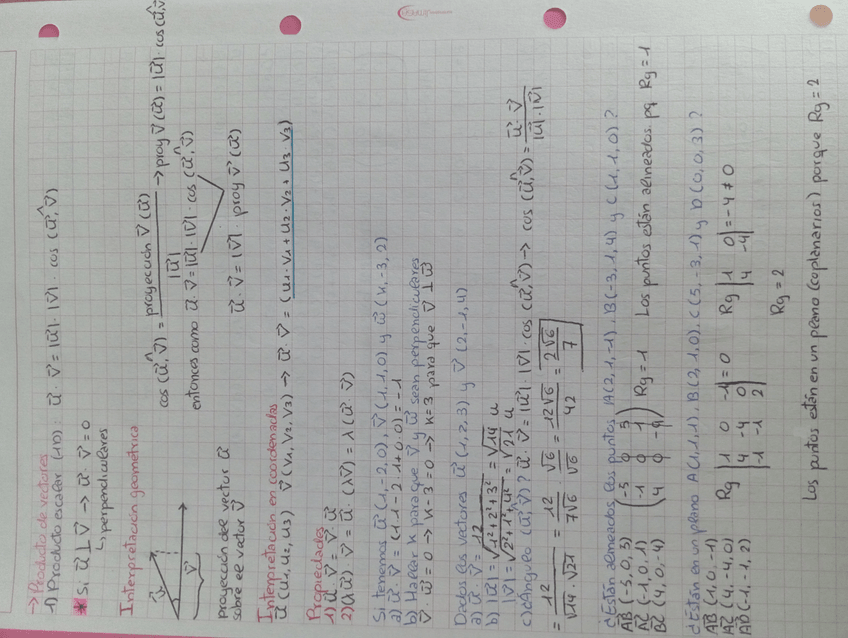 → Producto de vectores
1) Producto escalar (1D): u⃗ · v⃗ = |u⃗| · |v⃗| · cos (u⃗,^v⃗)
* Si u⃗ ⊥ v⃗ → u⃗ · v⃗ = 0
↳ perpendiculares
Interpretación geométrica
u⃗
v⃗
cos (u⃗,^v⃗) = proyección v⃗ (u⃗) / |u⃗| → proy v⃗ (u⃗) = |u⃗| · cos (u⃗,^v⃗)
entonces como u⃗ · v⃗ = |u⃗| · |v⃗| · cos (u⃗,^v⃗)
u⃗ · v⃗ = |v⃗| · proy v⃗ (u⃗)
proyección del vector u⃗
sobre el vector v⃗
Interpretación en coordenadas
u⃗ (u1, u2, u3) v⃗ (v1, v2, v3) → u⃗ · v⃗ = (u1 · v1 + u2 · v2 + u3 · v3)
Propiedades
1) u⃗ · v⃗ = v⃗ · u⃗
2) (λu⃗) · v⃗ = u⃗ · (λv⃗) = λ(u⃗ · v⃗)
Si tenemos u⃗ (1,-2,0), v⃗ (1,1,0) y w⃗ (k,-3,2)
a) u⃗ · v⃗ = (1·1 - 2·1 + 0·0) = -1
b) Hallar k para que v⃗ y w⃗ sean perpendiculares
v⃗ · w⃗ = 0 → k - 3 = 0 → k = 3 para que v⃗ ⊥ w⃗
Dados los vectores u⃗ (1,2,3) y v⃗ (2,-1,4)
a) u⃗ · v⃗ = 12
b) |u⃗| = √1² + 2² + 3² = √14 u
|v⃗| = √2² + 1² + 4² = √21 u
c) ¿ángulo (u⃗,v⃗)? u⃗ · v⃗ = |u⃗| · |v⃗| · cos (u⃗,^v⃗) → cos (u⃗,^v⃗) = u⃗ · v⃗ / |u⃗| · |v⃗|
= 12 / √14 · √21 = 12 / 7√6 · √6 / √6 = 12√6 / 42 = 2√6 / 7
¿Están alineados los puntos A(2,1,-1), B(-3,1,4) y C(1,1,0)?
AB⃗ (-5,0,5) (-5 0 5)
AC⃗ (-1,0,1) (-1 0 1) Rg = 1 Los puntos están alineados pq Rg = 1
BC⃗ (4,0,-4) (4 0 -4)
¿Están en un plano A(1,1,1), B(2,1,0), C(5,-3,1) y D(0,0,3)?
AB⃗ (1,0,-1) Rg |1 0 -1| = 0 Rg |1 0| = -4 ≠ 0
AC⃗ (4,-4,0) |4 -4 0| |4 -4|
AD⃗ (-1,-1,2) |-1 -1 2|
Rg = 2
Los puntos están en un plano (coplanarios) porque Rg = 2